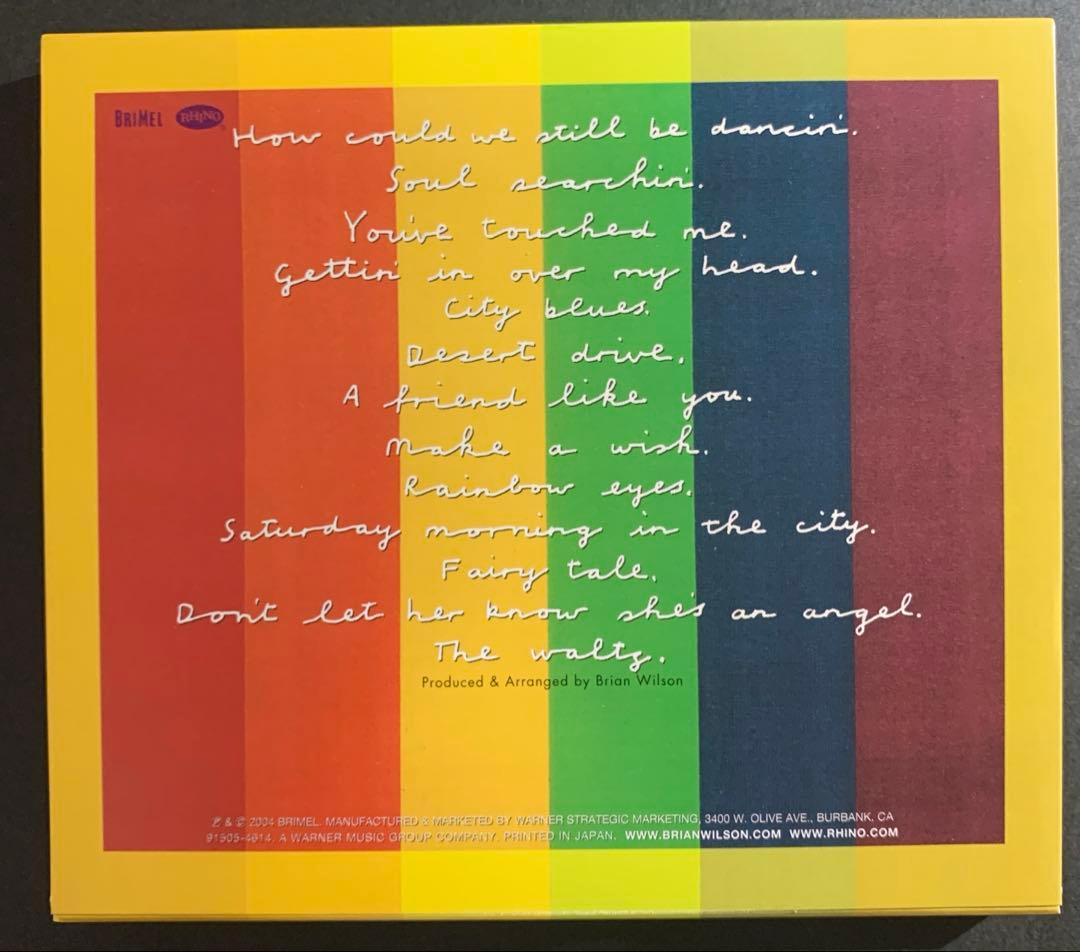 BRIMEL RHINO
How could we still be dancin'.
Soul searchin'.
You've touched me.
Gettin' in over my head.
City blues.
Desert drive.
A friend like you.
Make a wish.
Rainbow eyes.
Saturday morning in the city.
Fairy tale.
Don't let her know she's an angel.
The waltz.
Produced & Arranged by Brian Wilson
℗ & © 2004 BRIMEL. MANUFACTURED & MARKETED BY WARNER STRATEGIC MARKETING, 3400 W. OLIVE AVE., BURBANK, CA
91505-4614. A WARNER MUSIC GROUP COMPANY. PRINTED IN JAPAN. WWW.BRIANWILSON.COM WWW.RHINO.COM